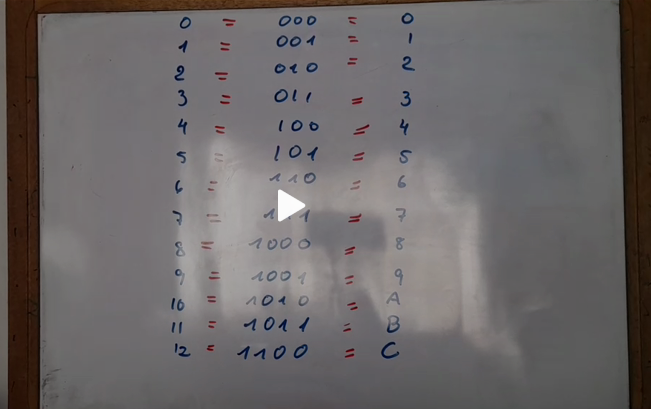 0 = 000 = 0
1 = 001 = 1
2 = 010 = 2
3 = 011 = 3
4 = 100 = 4
5 = 101 = 5
6 = 110 = 6
7 = = 7
8 = 1000 = 8
9 = 1001 = 9
10 = 1010 = A
11 = 1011 = B
12 = 1100 = C